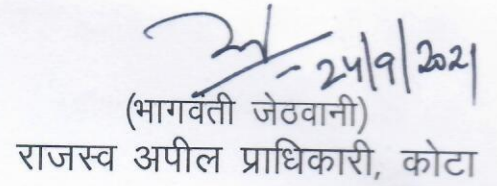 24/9/2021
(भागवंती जेठवानी)
राजस्व अपील प्राधिकारी, कोटा